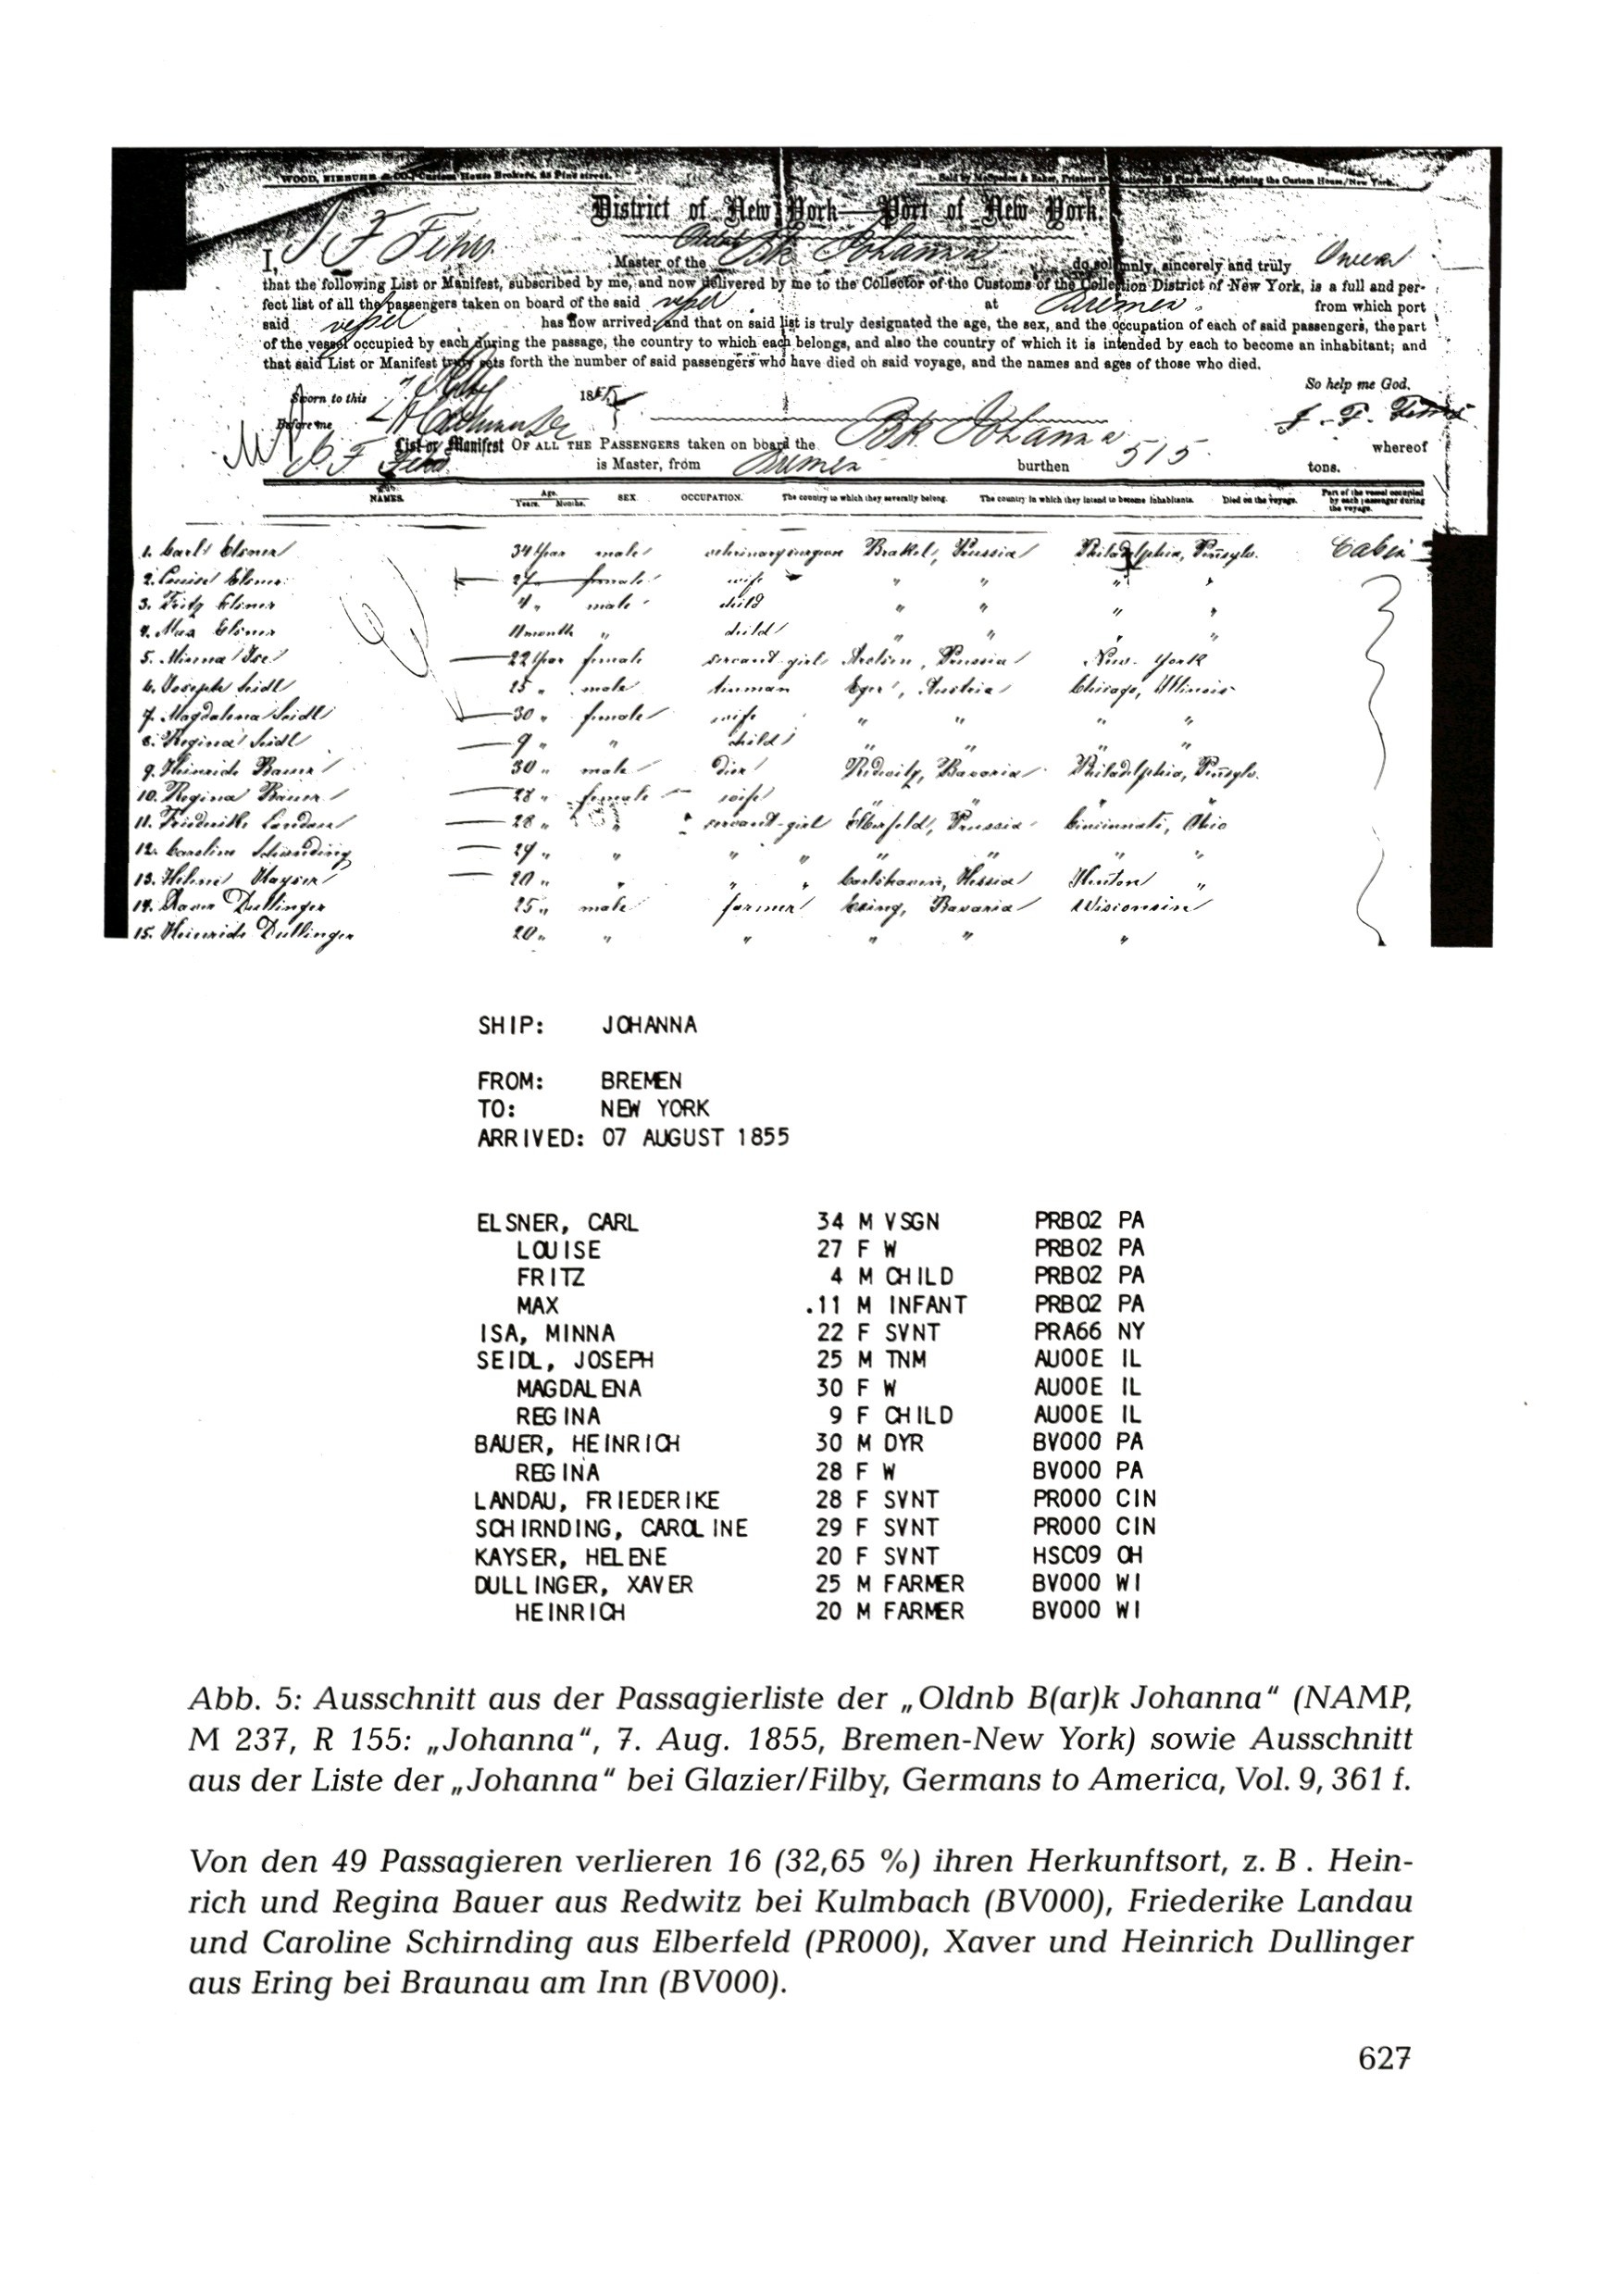 WOOD, NIEBUHR & CO., Custom House Brokers, 25 Pine street.
District of New York—Port of New York.
I, J F Fehn Master of the Bk Johanna do solemnly, sincerely and truly swear
that the following List or Manifest, subscribed by me, and now delivered by me to the Collector of the Customs of the Collection District of New York, is a full and per-
fect list of all the passengers taken on board of the said vessel at Bremen from which port
said vessel has now arrived; and that on said list is truly designated the age, the sex, and the occupation of each of said passengers, the part
of the vessel occupied by each during the passage, the country to which each belongs, and also the country of which it is intended by each to become an inhabitant; and
that said List or Manifest truly sets forth the number of said passengers who have died on said voyage, and the names and ages of those who died.
So help me God.
Sworn to this 7 1855
Before me
List or Manifest OF ALL THE PASSENGERS taken on board the Bk Johanna whereof
is Master, from Bremen burthen 515 tons.
NAMES. Age. Years. Months. SEX. OCCUPATION. The country to which they severally belong. The country in which they intend to become inhabitants. Died on the voyage. Part of the vessel occupied by each passenger during the voyage.
1. Carl Elsner 34 Year male veterinary surgeon Brakel, Prussia Philadelphia, Pensylv. Cabin
2. Louise Elsner 27 female wife " " " "
3. Fritz Elsner 4 " male child " " " "
4. Max Elsner 11 month " child " " " "
5. Minna Ise 22 Year female servant-girl Arolsen, Prussia New-York
6. Joseph Seidl 25 " male tinman Eger, Austria Chicago, Illinois
7. Magdalena Seidl 30 " female wife " " " "
8. Regina Seidl 9 " " child " " " "
9. Heinrich Bauer 30 " male dier Redwitz, Bavaria Philadelphia, Pensylv.
10. Regina Bauer 28 " female wife " " " "
11. Friederike Landau 28 " " servant-girl Elberfeld, Prussia Cincinnati, Ohio
12. Caroline Schirnding 29 " " " " " " " "
13. Helene Kayser 20 " " " " Carlshaven, Hessia "
14. Xaver Dullinger 25 " male farmer Ering, Bavaria Wisconsin
15. Heinrich Dullinger 20 " " " " " "
SHIP: JOHANNA
FROM: BREMEN
TO: NEW YORK
ARRIVED: 07 AUGUST 1855
ELSNER, CARL 34 M VSGN PRB02 PA
LOUISE 27 F W PRB02 PA
FRITZ 4 M CHILD PRB02 PA
MAX .11 M INFANT PRB02 PA
ISA, MINNA 22 F SVNT PRA66 NY
SEIDL, JOSEPH 25 M TNM AU00E IL
MAGDALENA 30 F W AU00E IL
REGINA 9 F CHILD AU00E IL
BAUER, HEINRICH 30 M DYR BV000 PA
REGINA 28 F W BV000 PA
LANDAU, FRIEDERIKE 28 F SVNT PR000 CIN
SCHIRNDING, CAROLINE 29 F SVNT PR000 CIN
KAYSER, HELENE 20 F SVNT HSC09 OH
DULLINGER, XAVER 25 M FARMER BV000 WI
HEINRICH 20 M FARMER BV000 WI
Abb. 5: Ausschnitt aus der Passagierliste der „Oldnb B(ar)k Johanna“ (NAMP,
M 237, R 155: „Johanna“, 7. Aug. 1855, Bremen-New York) sowie Ausschnitt
aus der Liste der „Johanna“ bei Glazier/Filby, Germans to America, Vol. 9, 361 f.
Von den 49 Passagieren verlieren 16 (32,65 %) ihren Herkunftsort, z. B . Hein-
rich und Regina Bauer aus Redwitz bei Kulmbach (BV000), Friederike Landau
und Caroline Schirnding aus Elberfeld (PR000), Xaver und Heinrich Dullinger
aus Ering bei Braunau am Inn (BV000).
627